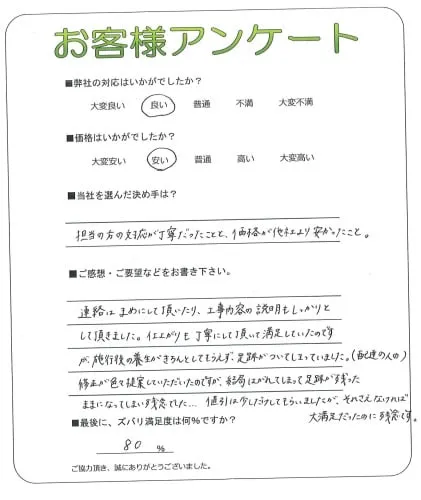 お客様アンケート
■弊社の対応はいかがでしたか？
大変良い 良い 普通 不満 大変不満
■価格はいかがでしたか？
大変安い 安い 普通 高い 大変高い
■当社を選んだ決め手は？
担当の方の対応が丁寧だったことと、価格が他社より安かったこと。
■ご感想・ご要望などをお書き下さい。
連絡はまめにして頂いたり、工事内容の説明もしっかりと
して頂きました。仕上がりも丁寧にして頂いて満足していたのです
が、施行後の養生がきちんとしてもらえず、足跡がついてしまっていました。(配達の人の)
修正が色々提案していただいたのですが、結局はがれてしまって足跡が残った
ままになってしまい残念でした… 値引は少しだけしてもらいましたが、それさえなければ
大満足だったのに残念です。
■最後に、ズバリ満足度は何％ですか？
80 ％
ご協力頂き、誠にありがとうございました。